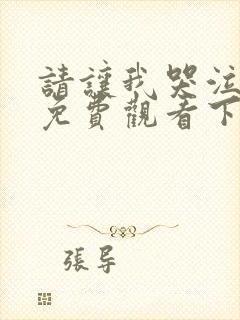 請讓我哭泣
免費觀看下
張导